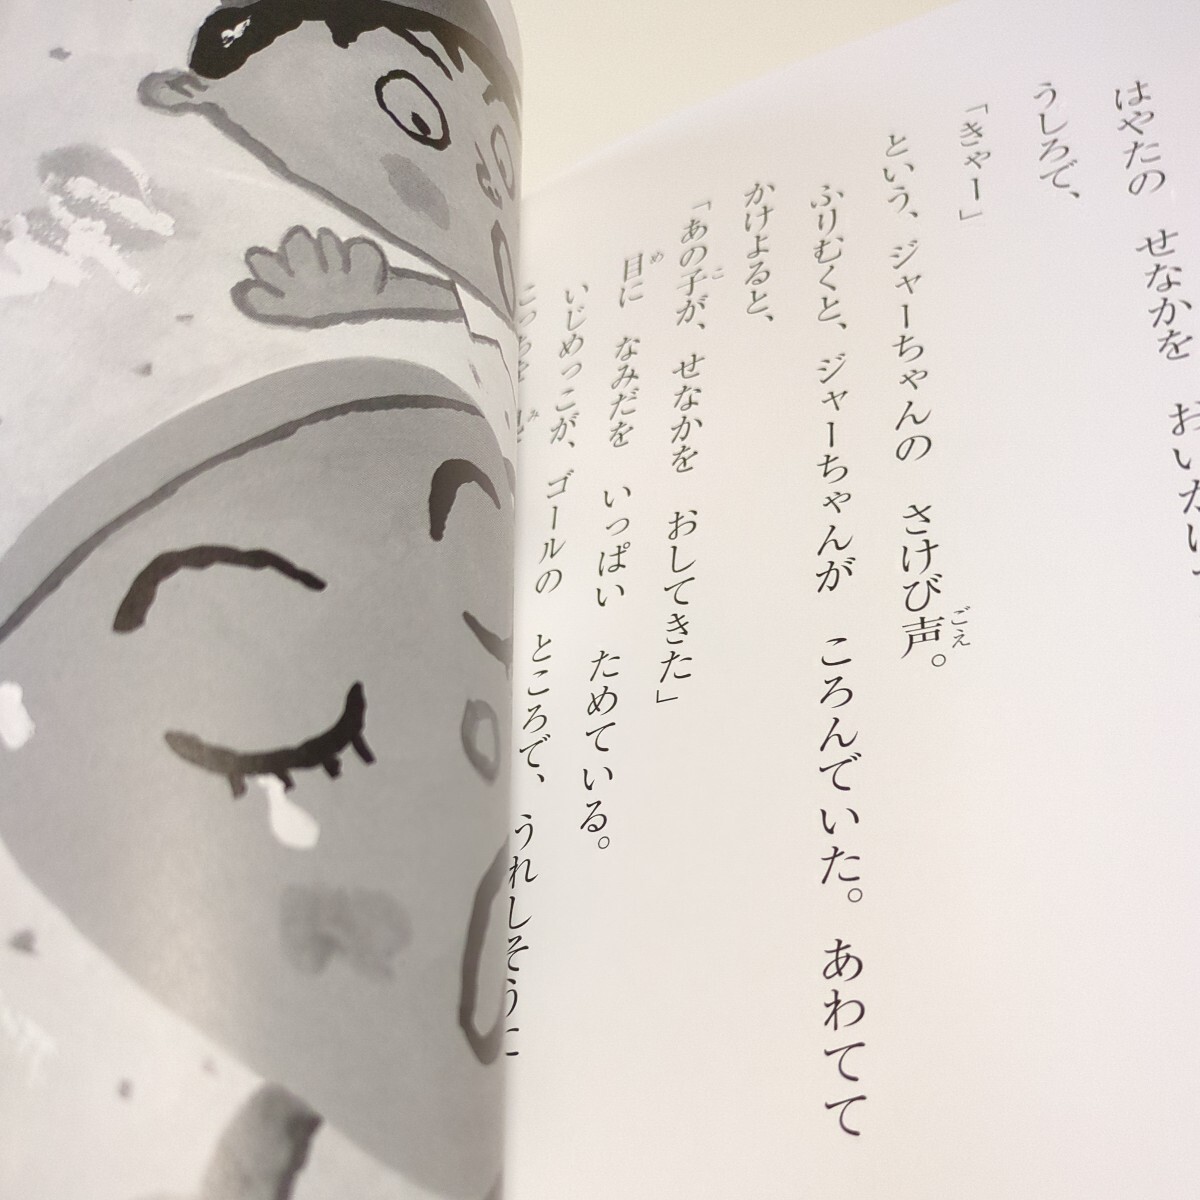 はやたの　せなかを　おいた
うしろで、
「きゃー」
という、ジャーちゃんの　さけび声。
ごえ
ふりむくと、ジャーちゃんが　ころんでいた。あわてて
かけよると、
「あの子が、せなかを　おしてきた」
こ
目に　なみだを　いっぱい　ためている。
め
いじめっこが、ゴールの　ところで、うれしそうに
こっちを　見
み